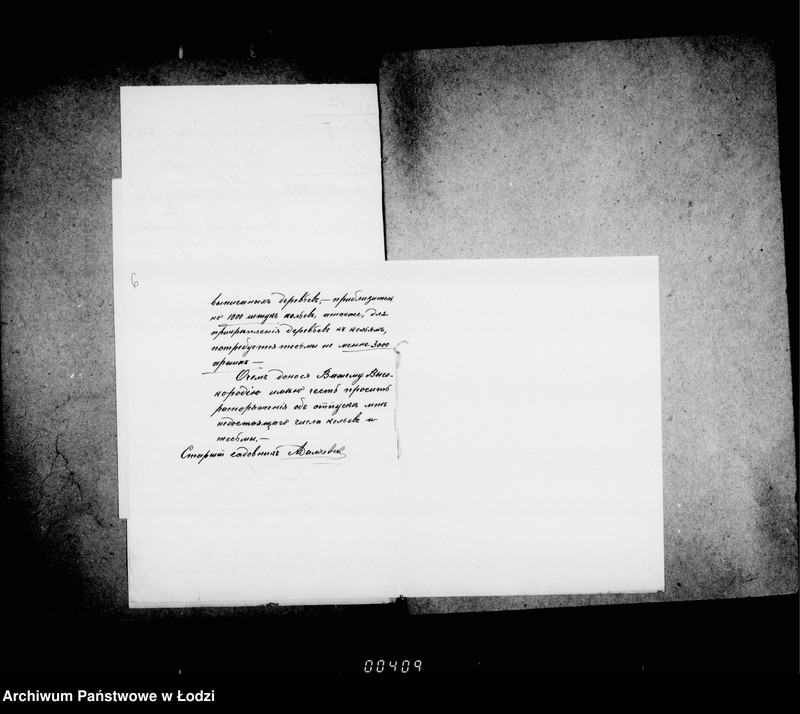 6
выписанныхъ деревьевъ, — приблизитель
но 1000 штукъ кольевъ, а также, для
прикрѣпленія деревьевъ къ кольямъ,
потребуется тесьмы не менѣе 3000
аршинъ —
О чемъ донося Вашему Высо-
кородію имѣю честь просить
распоряженія объ отпускѣ мнѣ
недостающаго числа кольевъ и
тесьмы. —
Старшій садовникъ
00409
Archiwum Państwowe w Łodzi